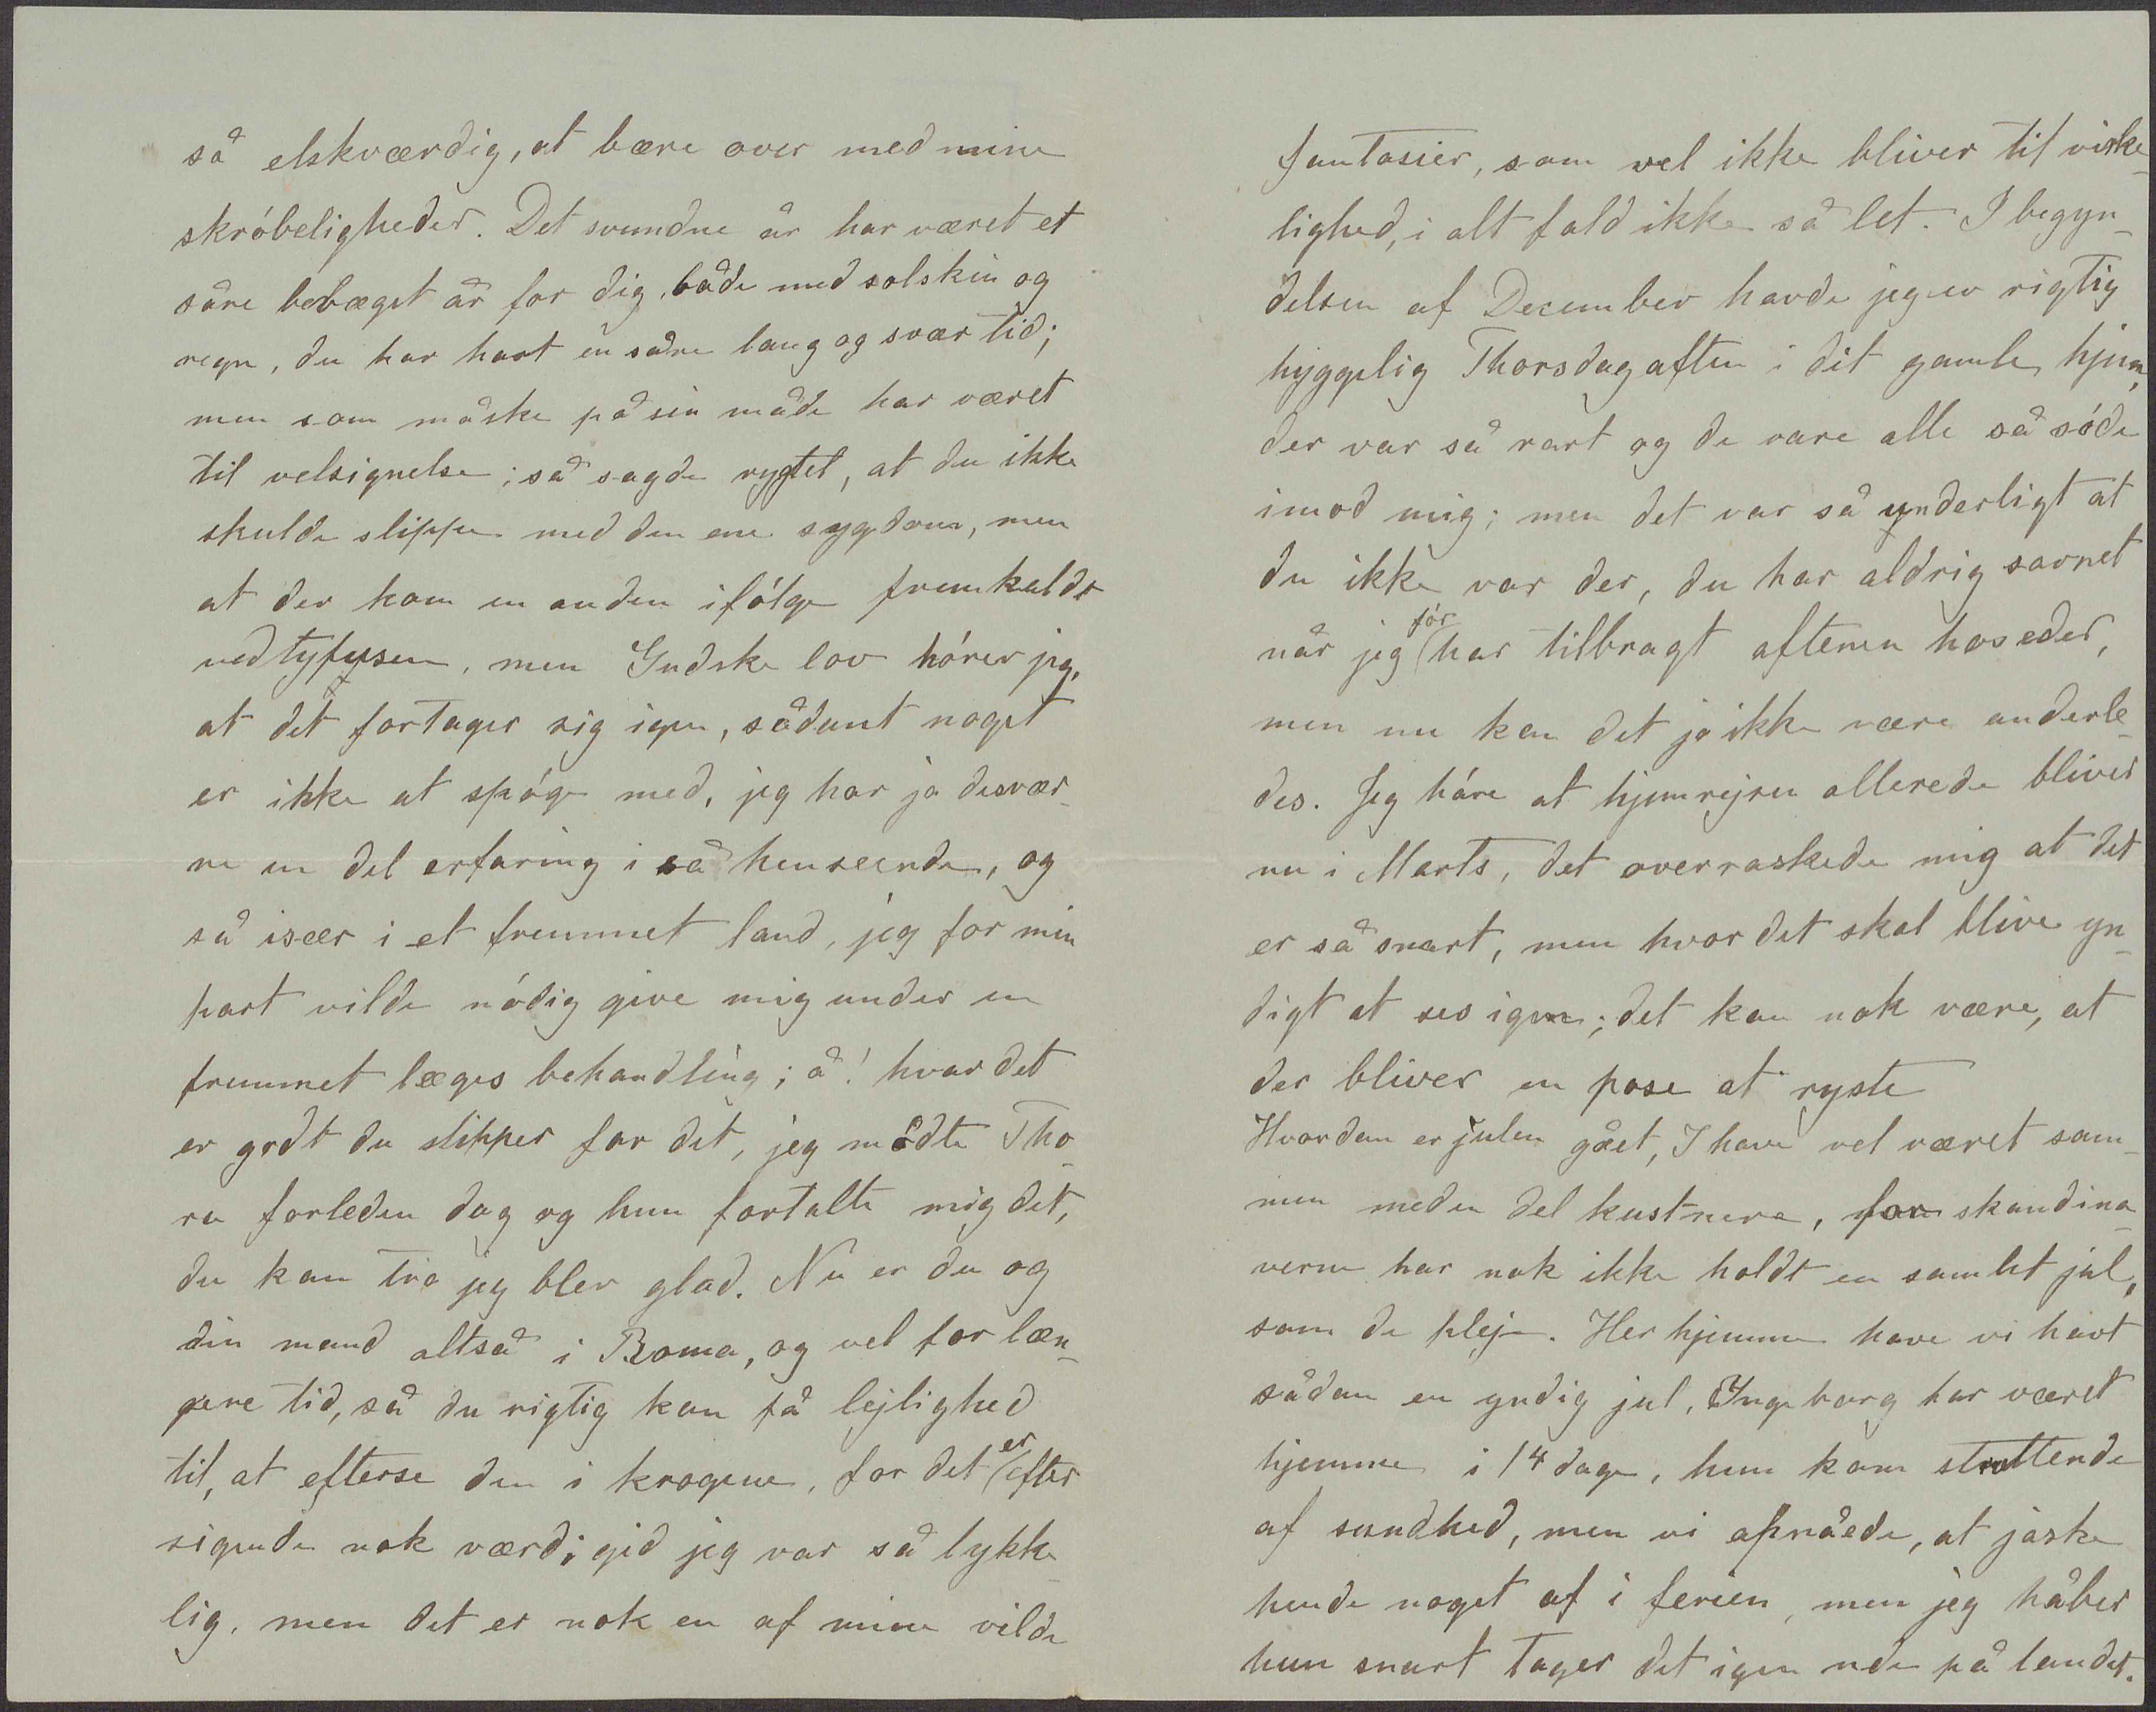 så elskværdig, at bære over med mine
skróbeligheder. Det svundne år har været et
såre bevæget år for dig, både med solskin og
regn, du har havt en såre lang og svær tid;
men som måske på sin måde har været
til velsignelse; så sagde rygtet, at du ikke
skulde slippe med den ene sygdom, men
at der kom en anden ifólge fremkaldt
ved tyfusen, men Gudske lov hórer jeg,
at det fortager sig igen, sådant noget
er ikke at spóge med, jeg har jo desvær-
re en del erfaring i så henseende, og
så især i et fremmet land, jeg for min
part vilde nódig give mig under en
fremmet læges behandling; å! hvor det
er godt du slipper for det, jeg módte Tho-
ra forleden dag og hun fortalte mig det,
du kan tro jeg blev glad. Nu er du og
din mand altså i Roma, og vel for læn-
gere tid, så du rigtig kan få lejlighed
til, at efterse den i krogene, for det er efter
sigende nok værd; gid jeg var så lykke-
lig, men det er nok en af mine vilde
fantasier, som vel ikke bliver til virke-
lighed, i alt fald ikke så let. I begyn-
delsen af December havde jeg en rigtig
hyggelig Thorsdag aften i dit gamle hjem,
der var så rart og de vare alle så sóde
imod mig; men det var så underligt at
du ikke var der, du har aldrig savnet
når jeg fór har tilbragt aftenen hos eder,
men nu kan det jo ikke være anderle-
des. Jeg hóre at hjemrejsen allerede bliver
nu i Marts, det overraskede mig at det
er så snart, men hvor det skal blive yn-
digt at ses igen; det kan nok være, at
der bliver en pose at ryste
Hvordan er julen gået, I have vel været sam-
men med en del kustnere, for skandina-
verne har nok ikke holdt en samlet jul,
som de pleje. Her hjemme have vi havt
sådan en yndig jul, Ingeborg har været
hjemme i 14 dage, hun kom struttende
af sundhed, men vi opnåede, at jaske
hende noget af i ferien, men jeg håber
hun snart tager det igen nede på landet.